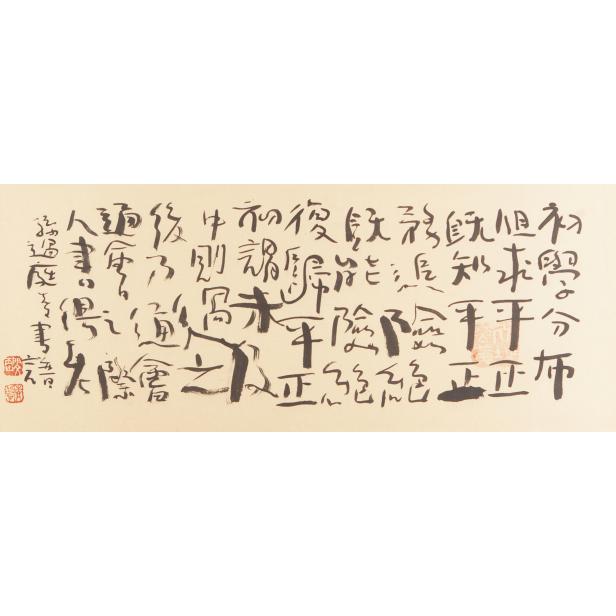 初學分布
但求平正
既知平正
務追險絕
既能險絕
復歸平正
初謂未及
中則過之
後乃通會
通會之際
人書俱老
孫過庭書譜